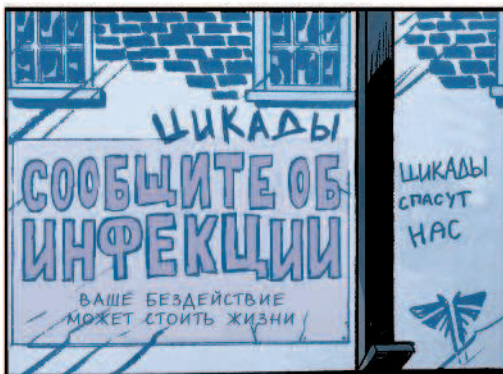 ЦИКАДЫ
СООБЩИТЕ ОБ
ИНФЕКЦИИ
ВАШЕ БЕЗДЕЙСТВИЕ
МОЖЕТ СТОИТЬ ЖИЗНИ
ЦИКАДЫ
СПАСУТ
НАС